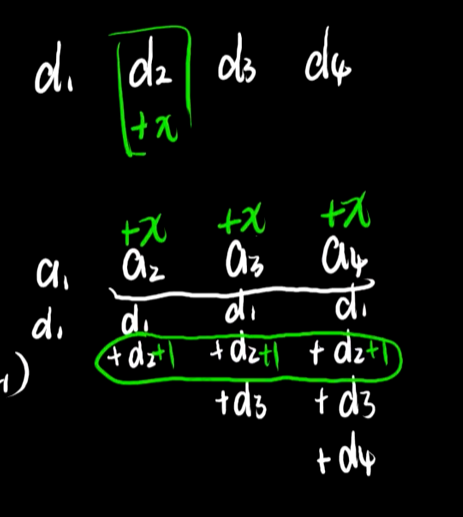 d₁ d₂ d₃ d₄
+x
+x +x +x
a₁ a₂ a₃ a₄
d₁ d₁ d₁ d₁
+d₂+1 +d₂+1 +d₂+1
+d₃ +d₃
+d₄